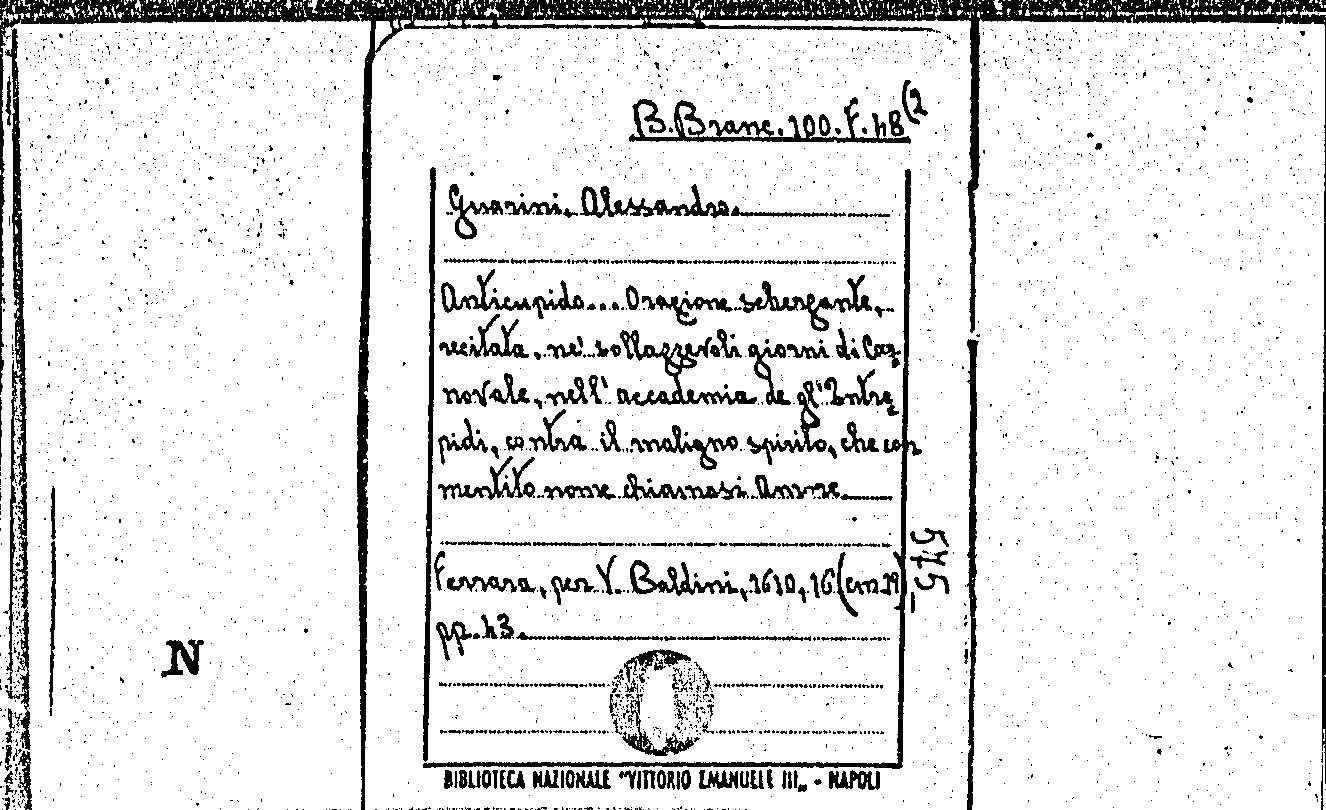 B. Branc. 100. F. 48 (2
Guarini, Alessandro.
Anticupido... Orazione scherzante,
recitata, ne' sollazzevoli giorni di Car
novale, nell' accademia de gl' Intre
pidi, contra il maligno spirito, che con
mentito nome chiamasi Amore.
Ferrara, per V. Baldini, 1610, 16 (cm. 19),
pp. 43.
575
N
BIBLIOTECA NAZIONALE "VITTORIO EMANUELE III„ - NAPOLI